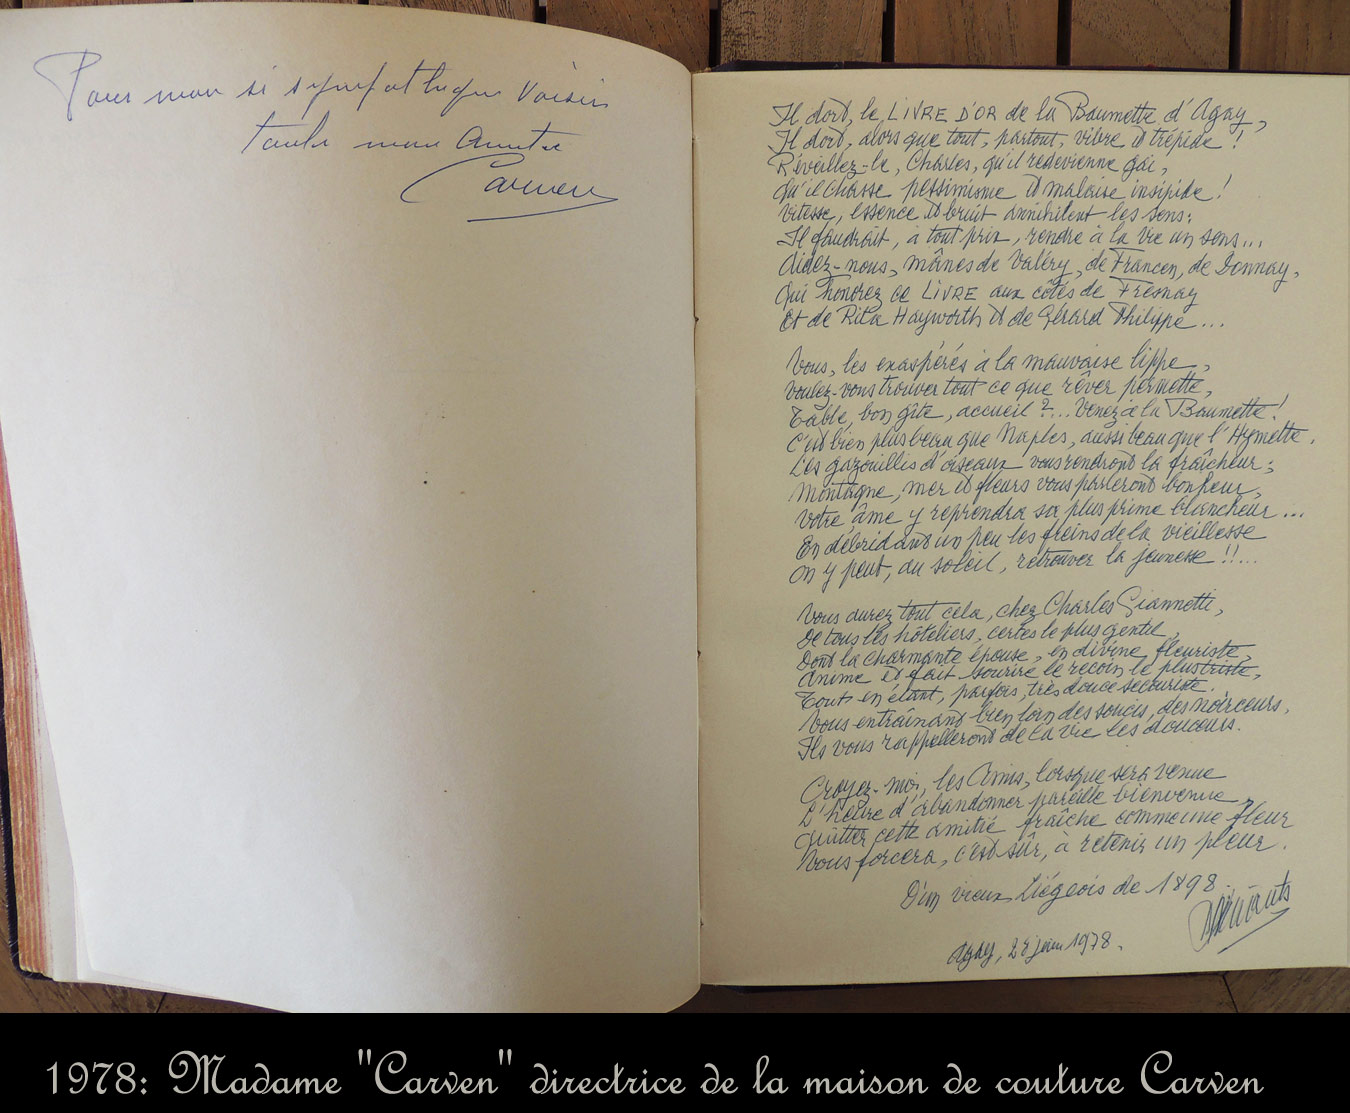 Pour mon si sympathique Voisin
toute mon Amitié
Carven
Il dort, le LIVRE D'OR de la Baumette d'Agay,
Il dort, alors que tout, partout, vibre et trépide !
Réveillez-le, Charles, qu'il redevienne gai,
Qu'il chasse pessimisme et malaise insipide !
Vitesse, essence et bruit annihilent les sens ;
Il faudrait, à tout prix, rendre à la vie un sens...
Aidez-nous, mânes de Valéry, de Francen, de Donnay,
Qui honorez ce LIVRE aux côtés de Fresnay
Et de Rita Hayworth et de Gérard Philippe...
Vous, les exaspérés à la mauvaise lippe,
Voulez-vous trouver tout ce que rêver permette,
Table, bon gîte, accueil ?... Venez à la Baumette !
C'est bien plus beau que Naples, aussi beau que l'Hymette.
Les gazouillis d'oiseaux vous rendront la fraîcheur ;
Montagne, mer et fleurs vous parleront bonheur,
Votre âme y reprendra sa plus prime blancheur...
En débridant un peu les freins de la vieillesse
On y peut, au soleil, retrouver la jeunesse !!...
Vous aurez tout cela, chez Charles Giannetti,
De tous les hôteliers, certes le plus gentil,
Dont la charmante épouse, en divine fleuriste,
Anime et fait sourire le recoin le plus triste,
Tout en étant, parfois, très douce secouriste.
Vous entraînant bien loin des soucis, des noirceurs,
Ils vous rappelleront de la vie les douceurs.
Croyez-moi, les Amis, lorsque sera venue
L'heure d'abandonner pareille bienvenue,
Quitter cette amitié fraîche comme une fleur
Vous forcera, c'est sûr, à retenir un pleur.
D'un vieux Liégeois de 1898
Agay, juin 1978.
1978: Madame "Carven" directrice de la maison de couture Carven